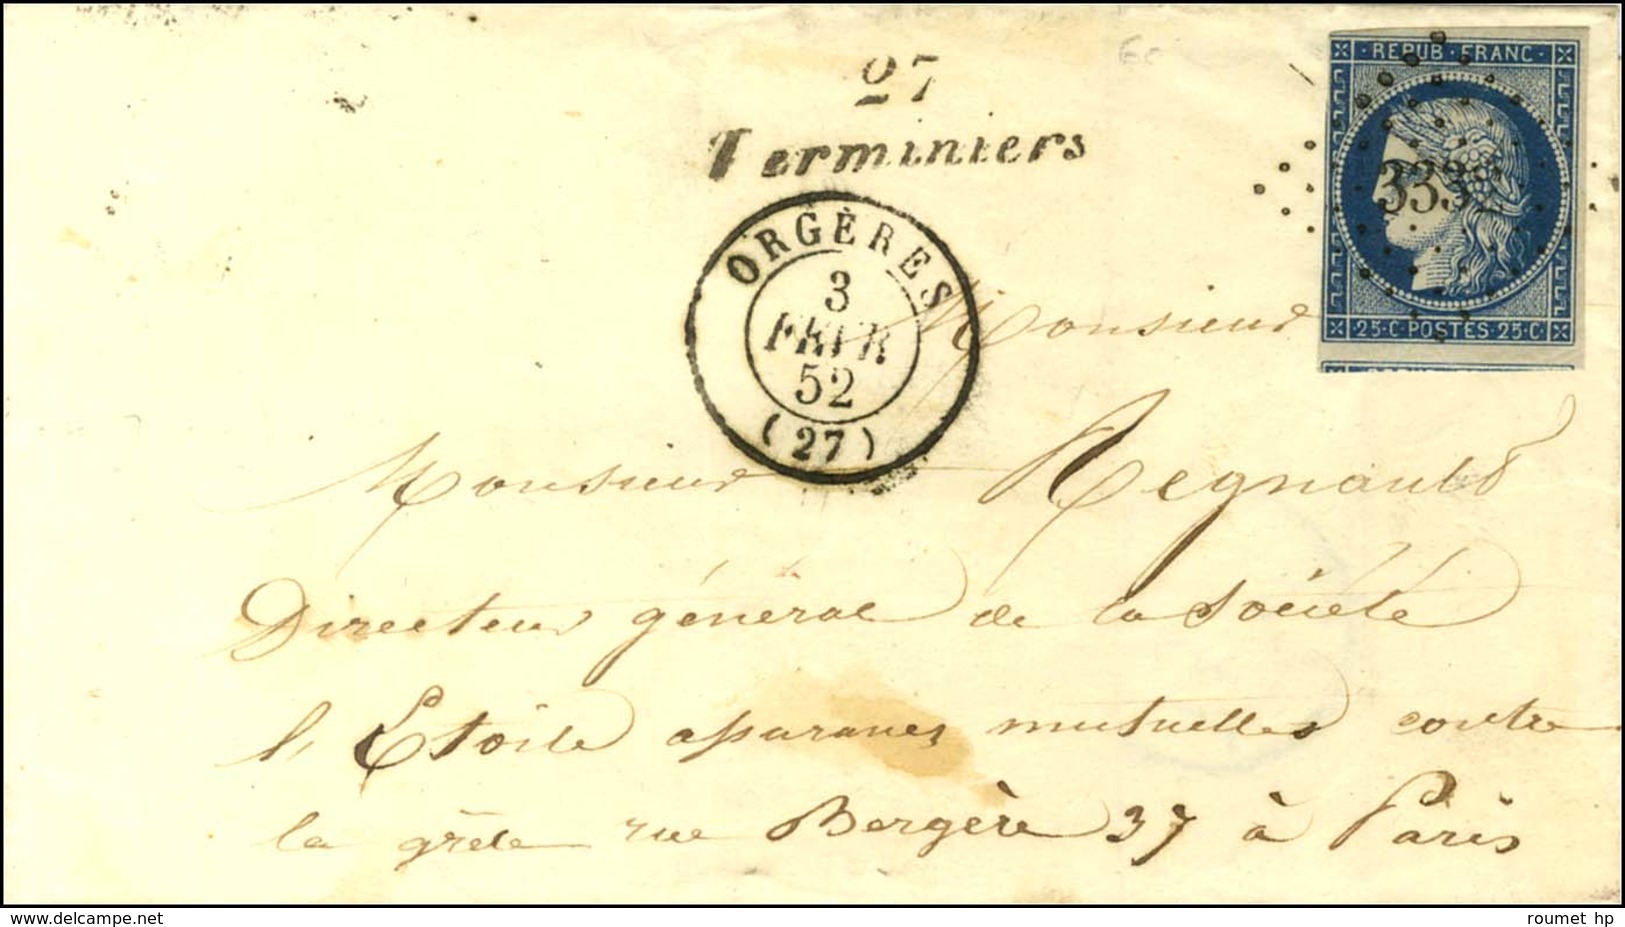 27
Terminiers
REPUB·FRANC·
ORGÈRES
3
FEVR
52
(27)
25·C·POSTES·25·C·
Monsieur
Monsieur Regnault
Directeur général de la Société
l'Etoile assurances mutuelles contre
la grêle rue Bergère 37 à Paris
delcampe.net
roumet hp